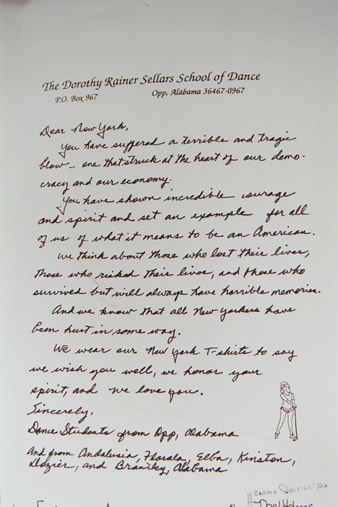 The Dorothy Rainer Sellars School of Dance
P.O. Box 967 Opp, Alabama 36467-0967
Dear New York,
You have suffered a terrible and tragic
blow - one that struck at the heart of our demo-
cracy and our economy.
You have shown incredible courage
and spirit and set an example for all
of us of what it means to be an American.
We think about those who lost their lives,
those who risked their lives, and those who
survived but will always have horrible memories.
And we know that all New Yorkers have
been hurt in some way.
We wear our New York T-shirts to say
we wish you well, we honor your
spirit, and we love you.
Sincerely,
Dance Students from Opp, Alabama
And from Andalusia, Florala, Elba, Kinston,
Dozier, and Brantley, Alabama